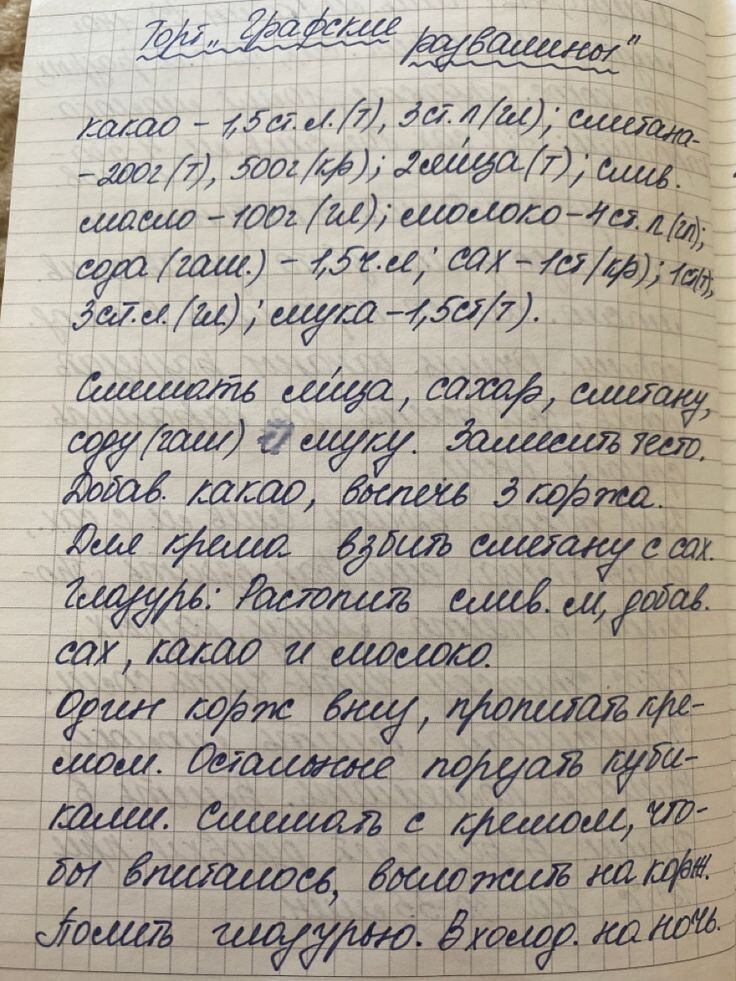 Торт „Графские
развалины"
какао – 1,5 ст.л.(т), 3 ст.л(гл); сметана-
– 200г(т), 500г(кр); 2 яйца(т); слив.
масло – 100г (гл); молоко – 4 ст.л(гл);
сода (гаш.) – 1,5 ч.л; сах – 1 ст(кр); 1 ст(т),
3 ст.л.(гл); мука – 1,5 ст(т).
Смешать яйца, сахар, сметану,
соду (гаш) и муку. Замесить тесто.
Добав. какао, выпечь 3 коржа.
Для крема взбить сметану с сах.
Глазурь: Растопить слив. м, добав.
сах, какао и молоко.
Один корж вниз, пропитать кре-
мом. Остальные порезать куби-
ками. Смешать с кремом, что-
бы впиталось, выложить на корж.
Полить глазурью. В холод. на ночь.